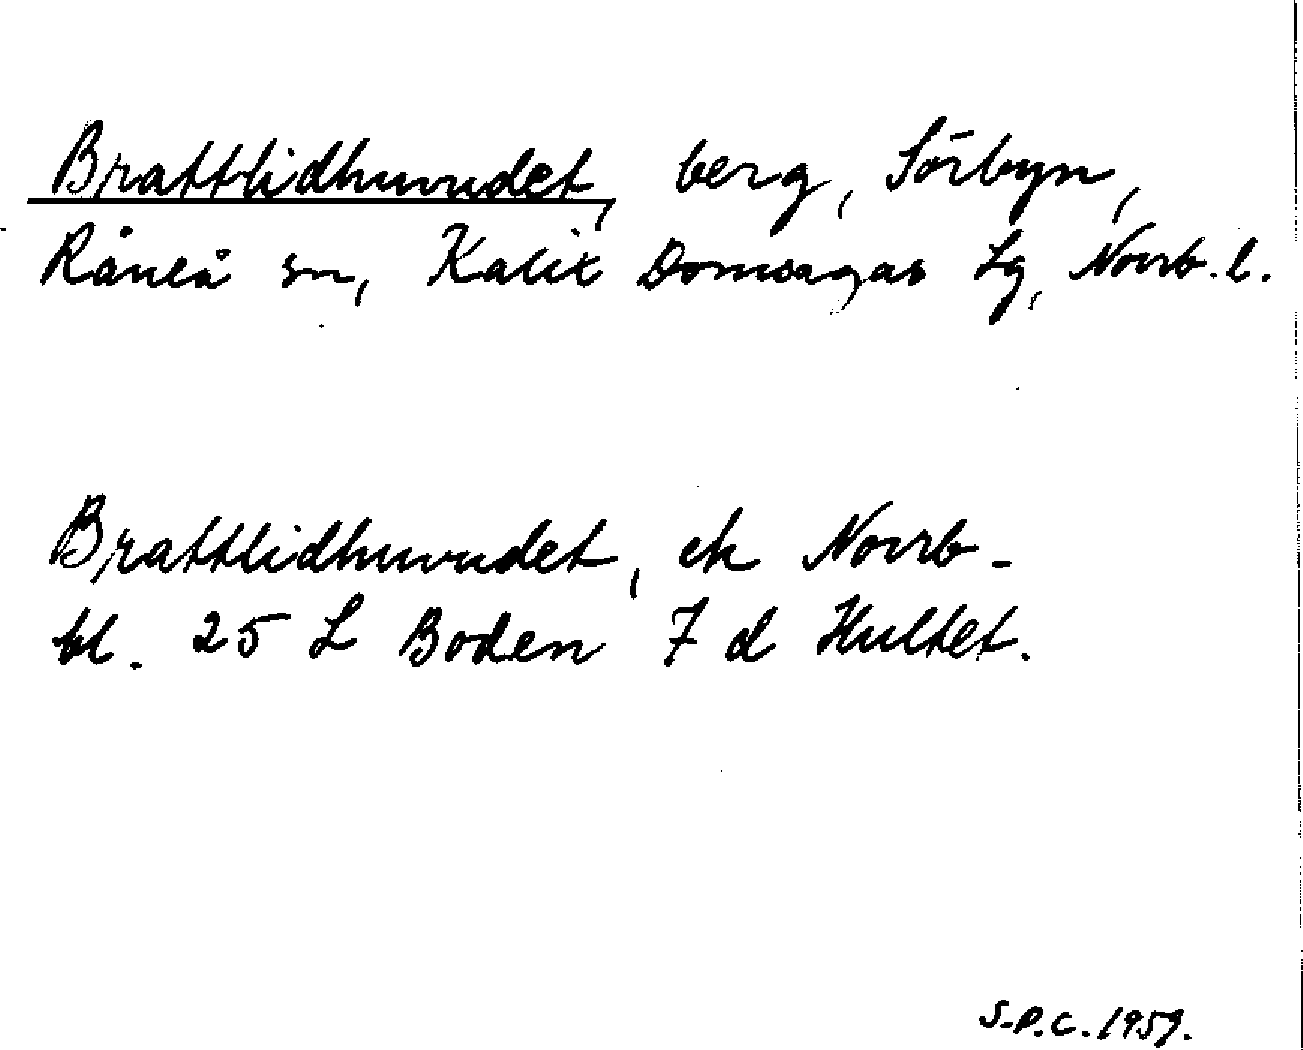 Brattlidhuvudet, berg, Sörbyn,
Råneå sn, Kalix Domsagas Lg, Norrb. l.
Brattlidhuvudet, ek Norrb-
bl. 25 L Boden 7 d Hultet.
S.P.C. 1959.